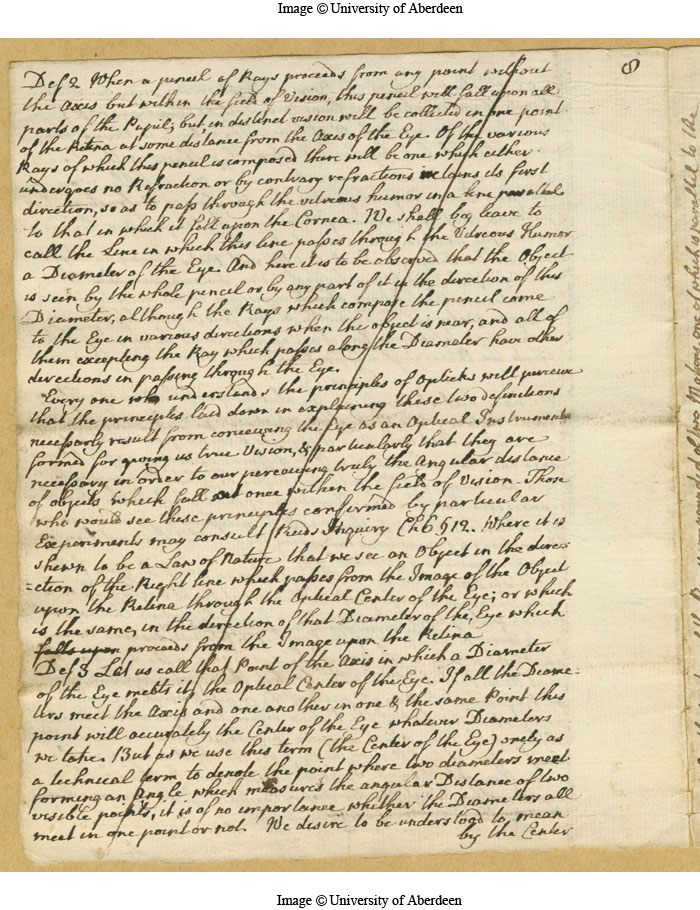 Image © University of Aberdeen
8
Def 2 When a pencil of Rays proceeds from any point without
the Axis but within the field of Vision, this pencil will fall upon all
parts of the Pupil; but, in distinct vision will be collected in one point
of the Retina at some distance from the Axis of the Eye. Of the various
Rays of which this pencil is composed there will be one which either
undergoes no Refraction or by contrary refractions retains its first
direction, so as to pass through the vitreous humor in a line parallel
to that in which it fell upon the Cornea. We shall beg leave to
call the Line in which this line passes through the Vitreous Humor
a Diameter of the Eye. And here it is to be observed that the Object
is seen by the whole pencil or by any part of it in the direction of this
Diameter, although the Rays which compose the pencil come
to the Eye in various directions when the object is near, and all of
them excepting the Ray which passes along the Diameter have other
directions in passing through the Eye.
Every one who understands the principles of Opticks will perceive
that the principles laid down in explaining these two definitions
necessarly result from conceiving the Eye as an Optical Instrument
formed for giving us true Vision, & particularly that they are
necessary in order to our perceiving truly the Angular distance
of objects which fall at once within the field of Vision. Those
who would see these principles confirmed by particular
Experiments may consult Reids Inquiry Ch 6 § 12. Where it is
shewn to be a Law of Nature that we see an Object in the direc-
-ction of the Right line which passes from the Image of the Object
upon the Retina through the Optical Center of the Eye; or which
is the same, in the direction of that Diameter of the, Eye which
falls upon proceeds from the Image upon the Retina
Def 3 Let us call that Point of the Axis in which a Diameter
of the Eye meets it, the Optical Center of the Eye. If all the Diame-
ters meet the Axis and one another in one & the same Point this
point will accurately the Center of the Eye whatever Diameters
we take. But as we use this term (the Center of the Eye) onely as
a technical term to denote the point where two diameters meet
forming an Angle which measures the angular Distance of two
visible points, it is of no importance whether the Diameters all
meet in one point or not. We desire to be understood to mean
by the Center
Image © University of Aberdeen